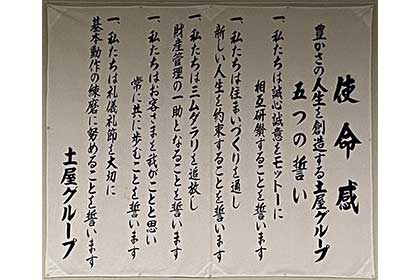 使命感
豊かさの人生を創造する土屋グループ
五つの誓い
一、私たちは誠心誠意をモットーに
相互研鑽することを誓います
一、私たちは住まいづくりを通し
新しい人生を約束することを誓います
一、私たちはニムダラリを追放し
財産管理の一助となることを誓います
一、私たちはお客さまを我がことと思い
常に共に歩むことを誓います
一、私たちは礼儀礼節を大切に
基本動作の練磨に努めることを誓います
土屋グループ